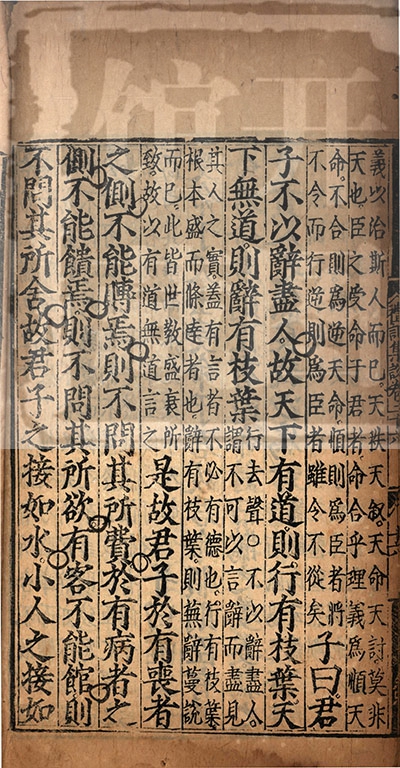 義以治斯人而已。天秩天叙。天命天討。莫非
天也。臣之受命于君者。命合乎理義。為順天
命。不合則為逆天命。順則為臣者將
不令而行。逆則為臣者雖令不從矣
子曰。君
子不以辭盡人。故天下有道。則行有枝葉。天
下無道。則辭有枝葉
行去聲○不以辭盡人。
謂不可以言辭而盡見
其人之實蓋有言者不必有德也。行有枝葉
根本盛而條達者也。辭有枝葉。則蕪辭蔓說
而已。此皆世教盛衰所
致。故以有道無道言之
是故君子於有喪者
之側不能賻焉則不問其所費於有病者之
側不能饋焉則不問其所欲有客不能館則
不問其所舍故君子之接如水。小人之接如